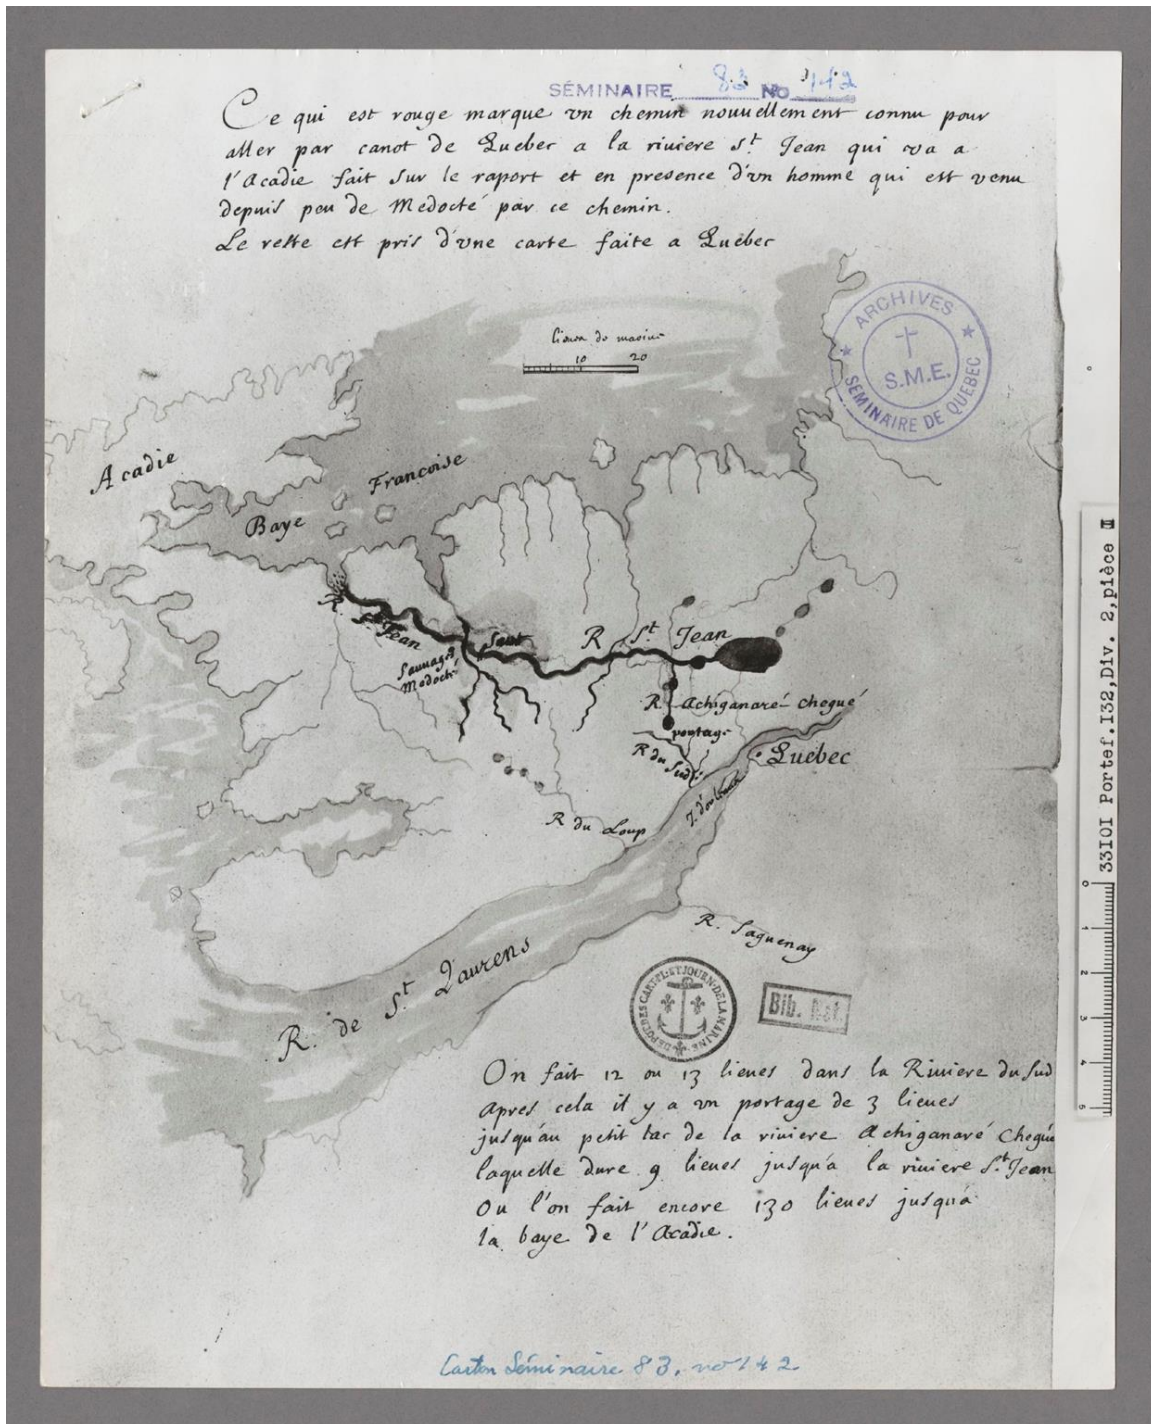 SÉMINAIRE 83 No 142
Ce qui est rouge marque vn chemin nouuellement connu pour
aller par canot de Quebec a la riuiere St Jean qui va a
l'Acadie fait sur le raport et en presence d'vn homme qui est venu
depuis peu de Medocté par ce chemin.
Le reste est pris d'vne carte faite a Québec
ARCHIVES
S.M.E.
SÉMINAIRE DE QUÉBEC
lieues de marine
10 20
Acadie
Baye Francoise
R. St Jean
Sauvages
Medocté
Saut
R St Jean
R. Achiganaré-chegué
portage
R du Sud
Québec
I. d'orleans
R du Loup
R. Saguenay
R. de St Laurens
DEPOT DES CARTES PL. ET JOURN. DE LA MARINE
Bib. Nat.
On fait 12 ou 13 lieues dans la Riuiere du Sud
apres cela il y a vn portage de 3 lieues
jusqu'au petit lac de la riuiere Achiganaré chegué
laquelle dure 9 lieues jusqu'a la riuiere St Jean
Ou l'on fait encore 130 lieues jusqu'a
la baye de l'Acadie.
33101 Portef.132,Div. 2,pièce II
0 1 2 3 4 5
Carton Séminaire 83, no 142